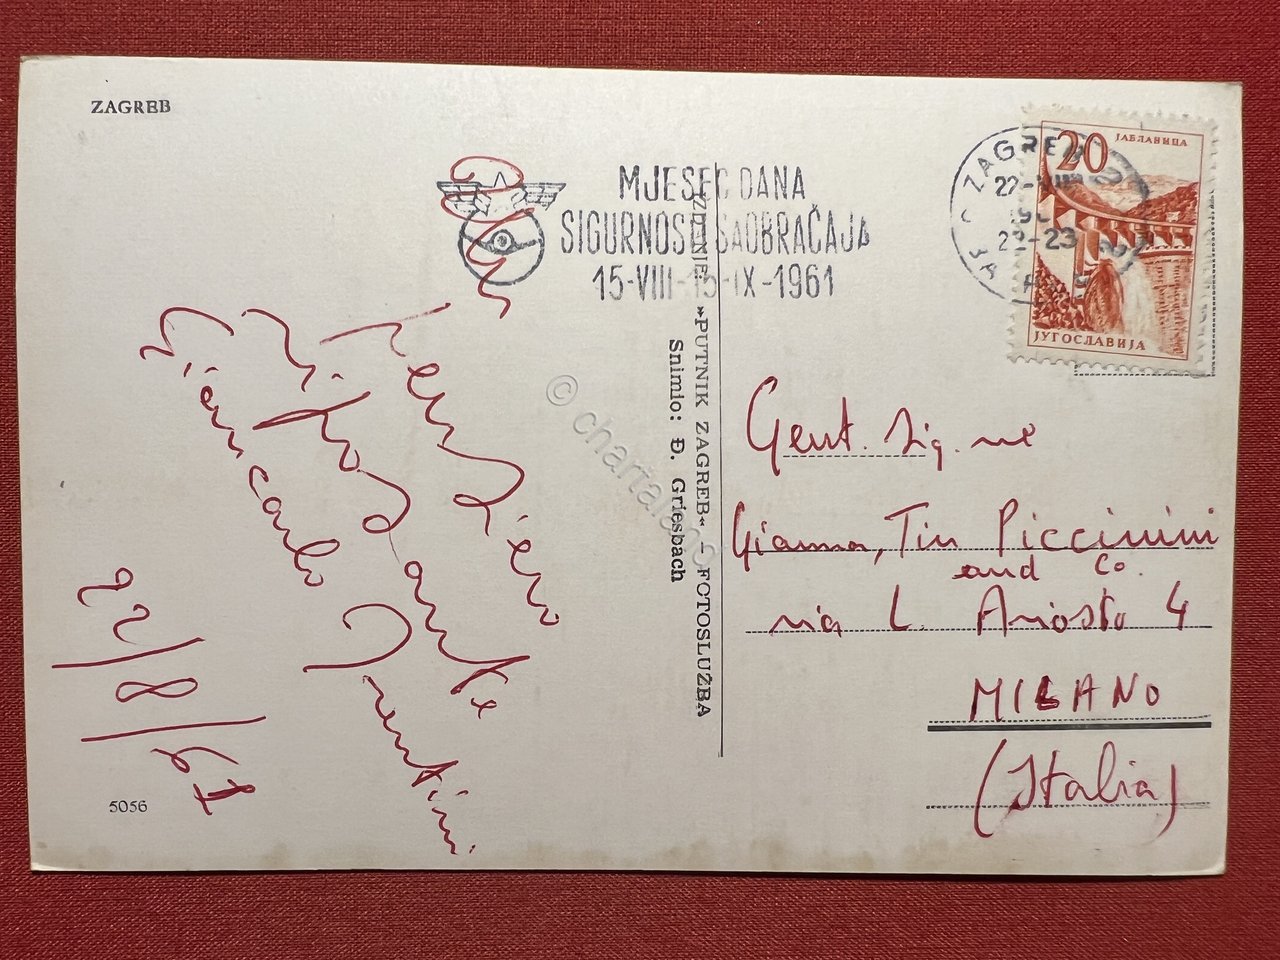 ZAGREB
MJESEC DANA
SIGURNOSTI SAOBRAĆAJA
15-VIII-15-IX-1961
ZAGREB 2
22-VIII
22-23
20
ЈАБЛАНИЦА
ЈУГОСЛАВИЈА
IZDANJE »PUTNIK ZAGREB« - FOTOSLUŽBA
Snimio: Đ. Griesbach
© chartaland
Gent. Sig.ne
Gianna, Tin Piccinini
and Co.
via L. Ariosto 4
MILANO
(Italia)
Giancarlo
22/8/61
5056